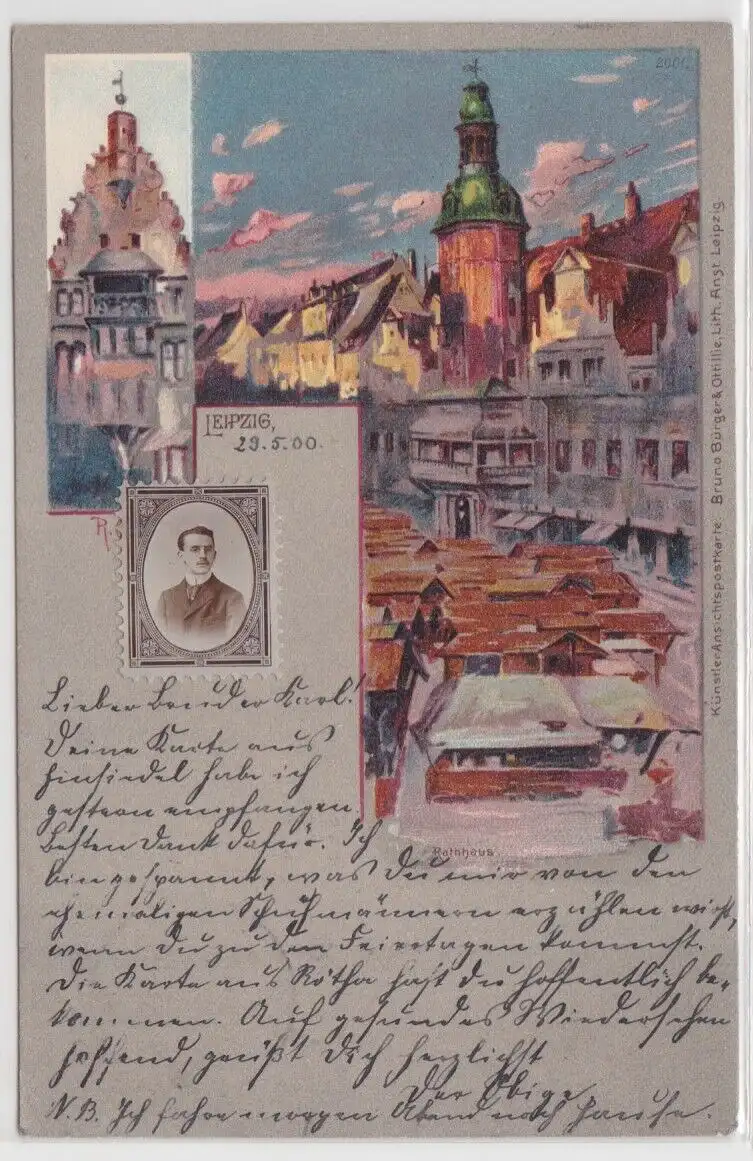 2001.
LEIPZIG,
29.5.00.
R
Künstler-Ansichtspostkarte. Bruno Bürger & Ottillie, Lith. Anst. Leipzig.
Rathhaus
Lieber Bruder Karl!
Deine Karte aus
Einsiedel habe ich
gestern empfangen.
Besten Dank dafür. Ich
bin gespannt, was Du mir von den
ehemaligen Schuhmännern erzählen wirst,
wenn Du zu den Feiertagen kommst.
Die Karte aus Rötha hast Du hoffentlich be-
kommen. Auf gesundes Wiedersehen
hoffend, grüßt Dich herzlichst
Der Obige.
N.B. Ich fahre morgen Abend nach Hause.